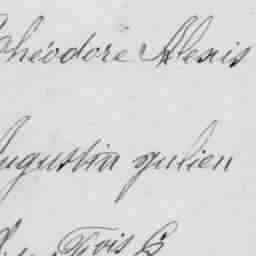 Théodore Alexis
Augustin julien